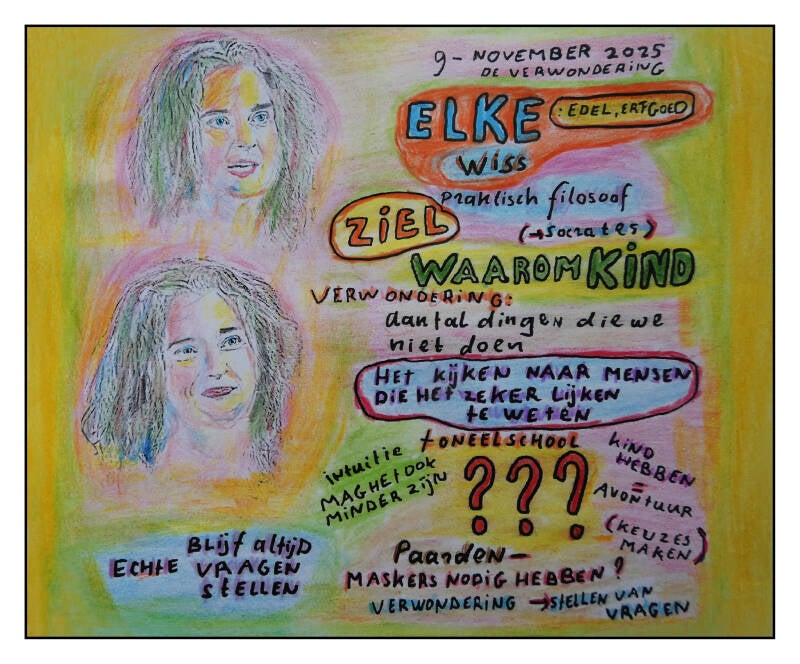 9 - NOVEMBER 2025
DE VERWONDERING
ELKE : EDEL, ERFGOED
WISS
praktisch filosoof
ZIEL
(→ socrates)
WAAROM KIND
VERWONDERING:
aantal dingen die we
niet doen
HET KIJKEN NAAR MENSEN
DIE HET ZEKER LIJKEN
TE WETEN
toneelschool
intuïtie
MAG HET OOK
MINDER ZIJN
? ? ?
KIND
HEBBEN
=
AVONTUUR
(KEUZES
MAKEN)
BLIJF altijd
ECHTE VRAGEN
stellen
Paarden -
MASKERS NODIG HEBBEN?
VERWONDERING → STELLEN VAN
VRAGEN